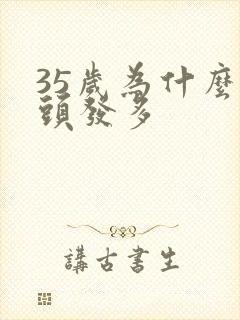 35歲為什麼
頭發多
講古書生